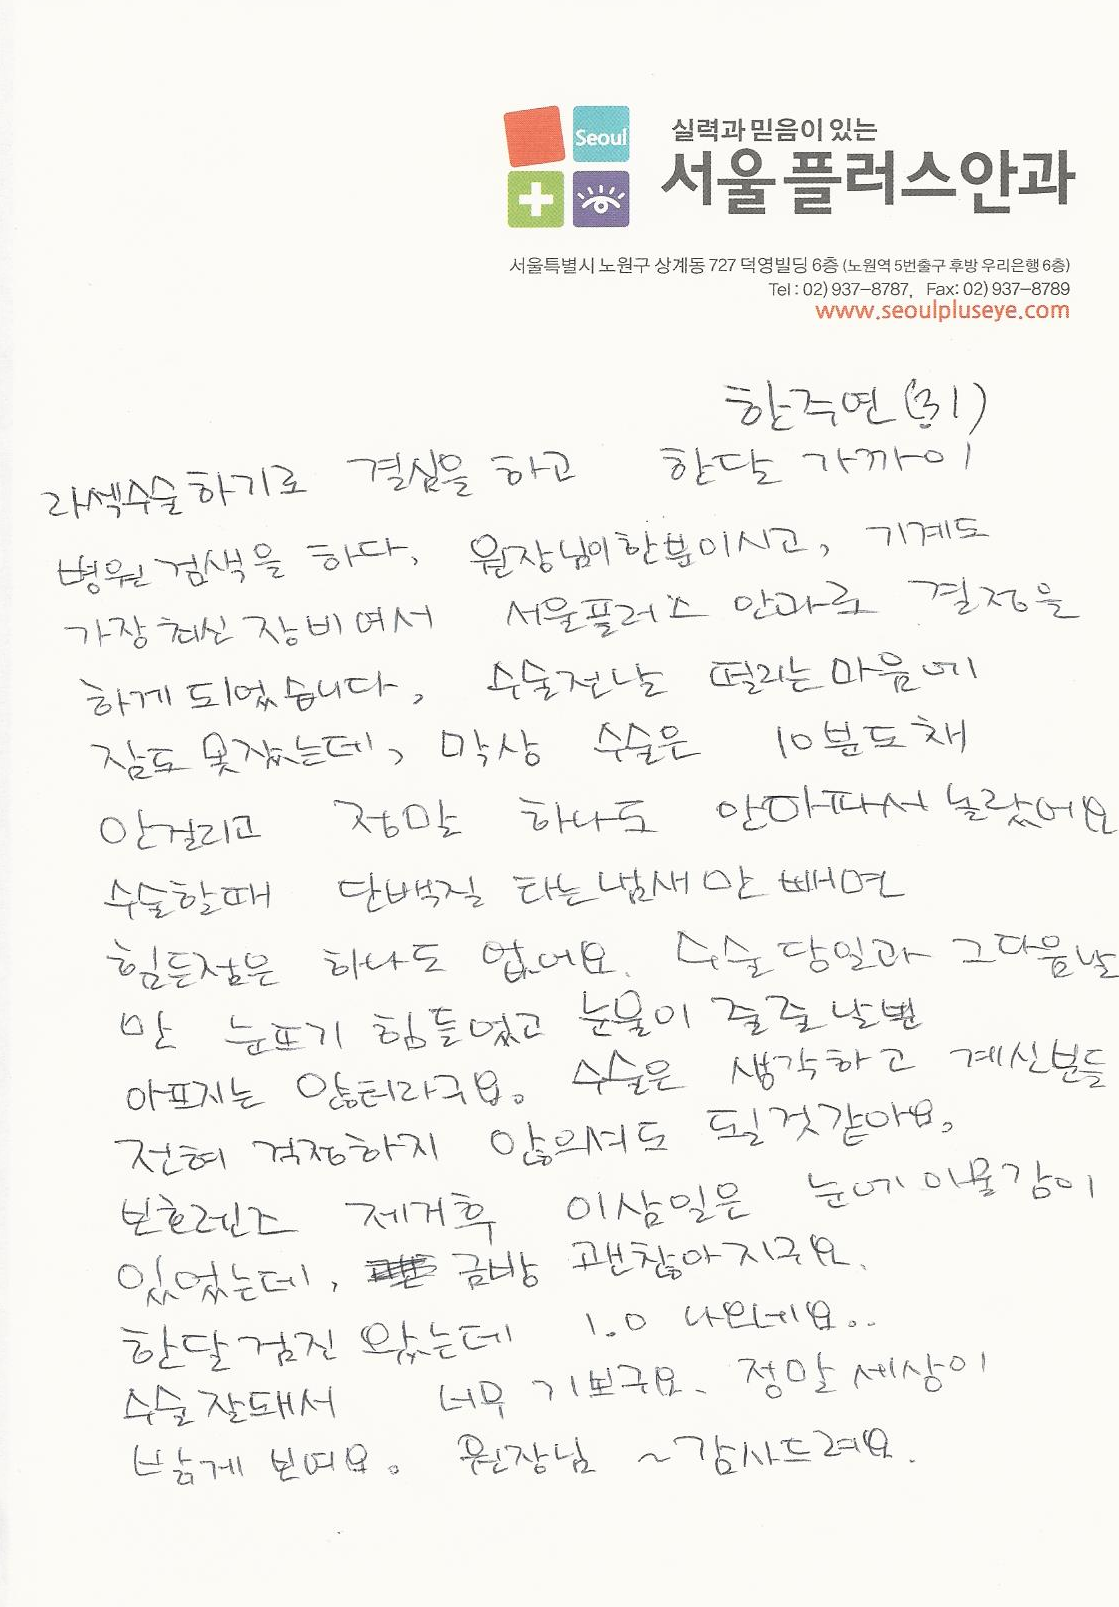 Seoul
실력과 믿음이 있는
서울플러스안과
서울특별시 노원구 상계동 727 덕영빌딩 6층 (노원역 5번출구 후방 우리은행 6층)
Tel : 02) 937-8787, Fax: 02) 937-8789
www.seoulpluseye.com
한주연 (31)
라섹수술하기로 결심을 하고 한달 가까이
병원 검색을 하다, 원장님이 한분이시고, 기계도
가장 최신 장비여서 서울플러스 안과로 결정을
하게 되었습니다, 수술전날 떨리는 마음에
잠도 못잤는데, 막상 수술은 10분도 채
안걸리고 정말 하나도 안아파서 놀랐어요
수술할때 단백질 타는 냄새만 빼면
힘든점은 하나도 없어요. 수술 당일과 그다음날
만 눈뜨기 힘들었고 눈물이 줄줄 날뿐
아프지는 않터라구요. 수술은 생각하고 계신분들
전혀 걱정하지 않으셔도 될것같아요.
보호렌즈 제거후 이삼일은 눈에 이물감이
있었는데, 금방 괜찮아지구요.
한달 검진 왔는데 1.0 나오네요..
수술 잘돼서 너무 기쁘구요. 정말 세상이
밝게 보여요. 원장님 ~ 감사드려요.